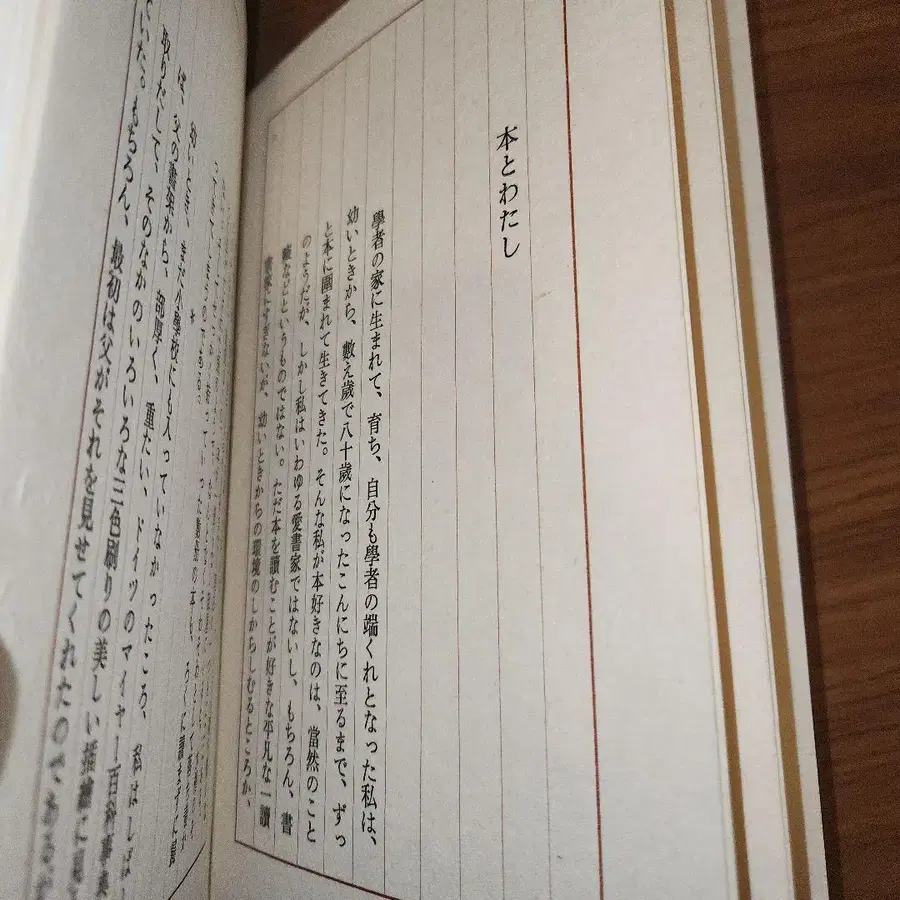 本とわたし
學者の家に生まれて、育ち、自分も學者の端くれとなった私は、
幼いときから、數え歲で八十歲になったこんにちに至るまで、ずっ
と本に圍まれて生きてきた。そんな私が本好きなのは、當然のこと
のようだが、しかし私はいわゆる愛書家ではないし、もちろん、書
癡などというものではない。ただ本を讀むことが好きな平凡な一讀
書家にすぎないが、幼いときからの環境のしからしむるところか、
＊
幼いとき、まだ小學校にも入っていなかったころ、私はしばし
ば、父の書架から、部厚く、重たい、ドイツのマイヤー百科事典
取りだして、そのなかのいろいろな三色刷りの美しい插繪に見
ていた。もちろん、最初は父がそれを見せてくれたのである